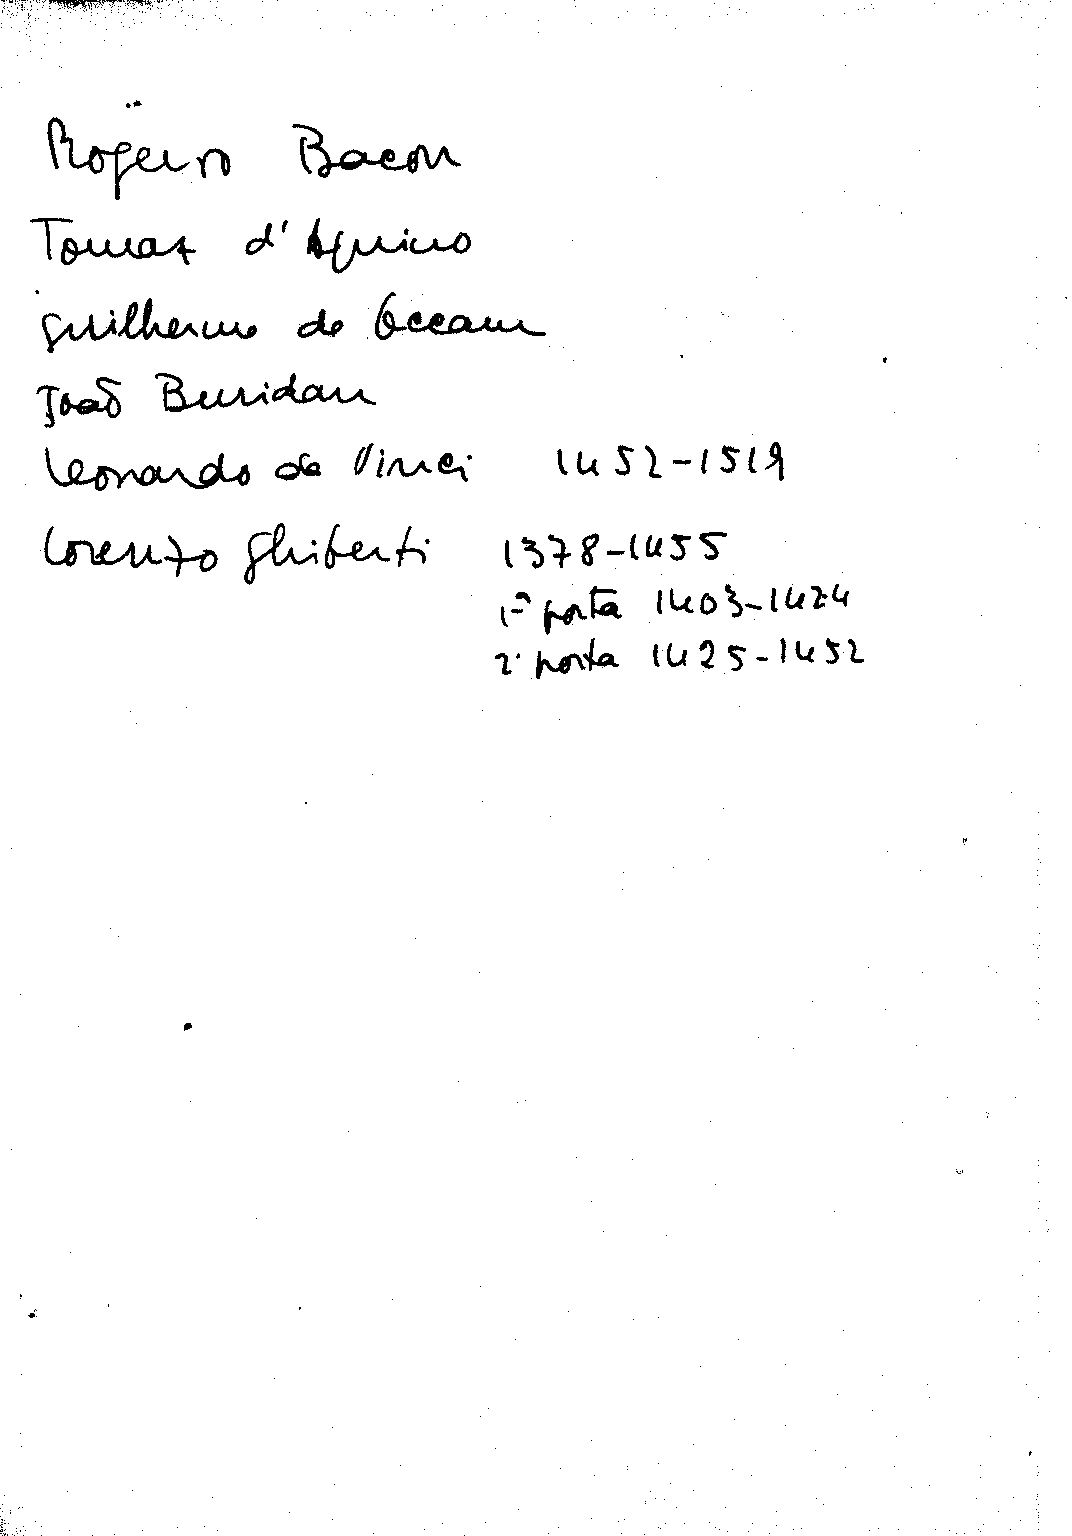 Rogerio Bacon
Tomaz d'Aquino
Guilherme de Occam
João Buridan
Leonardo da Vinci 1452-1519
Lorenzo Ghiberti 1378-1455
1ª porta 1403-1424
2ª porta 1425-1452